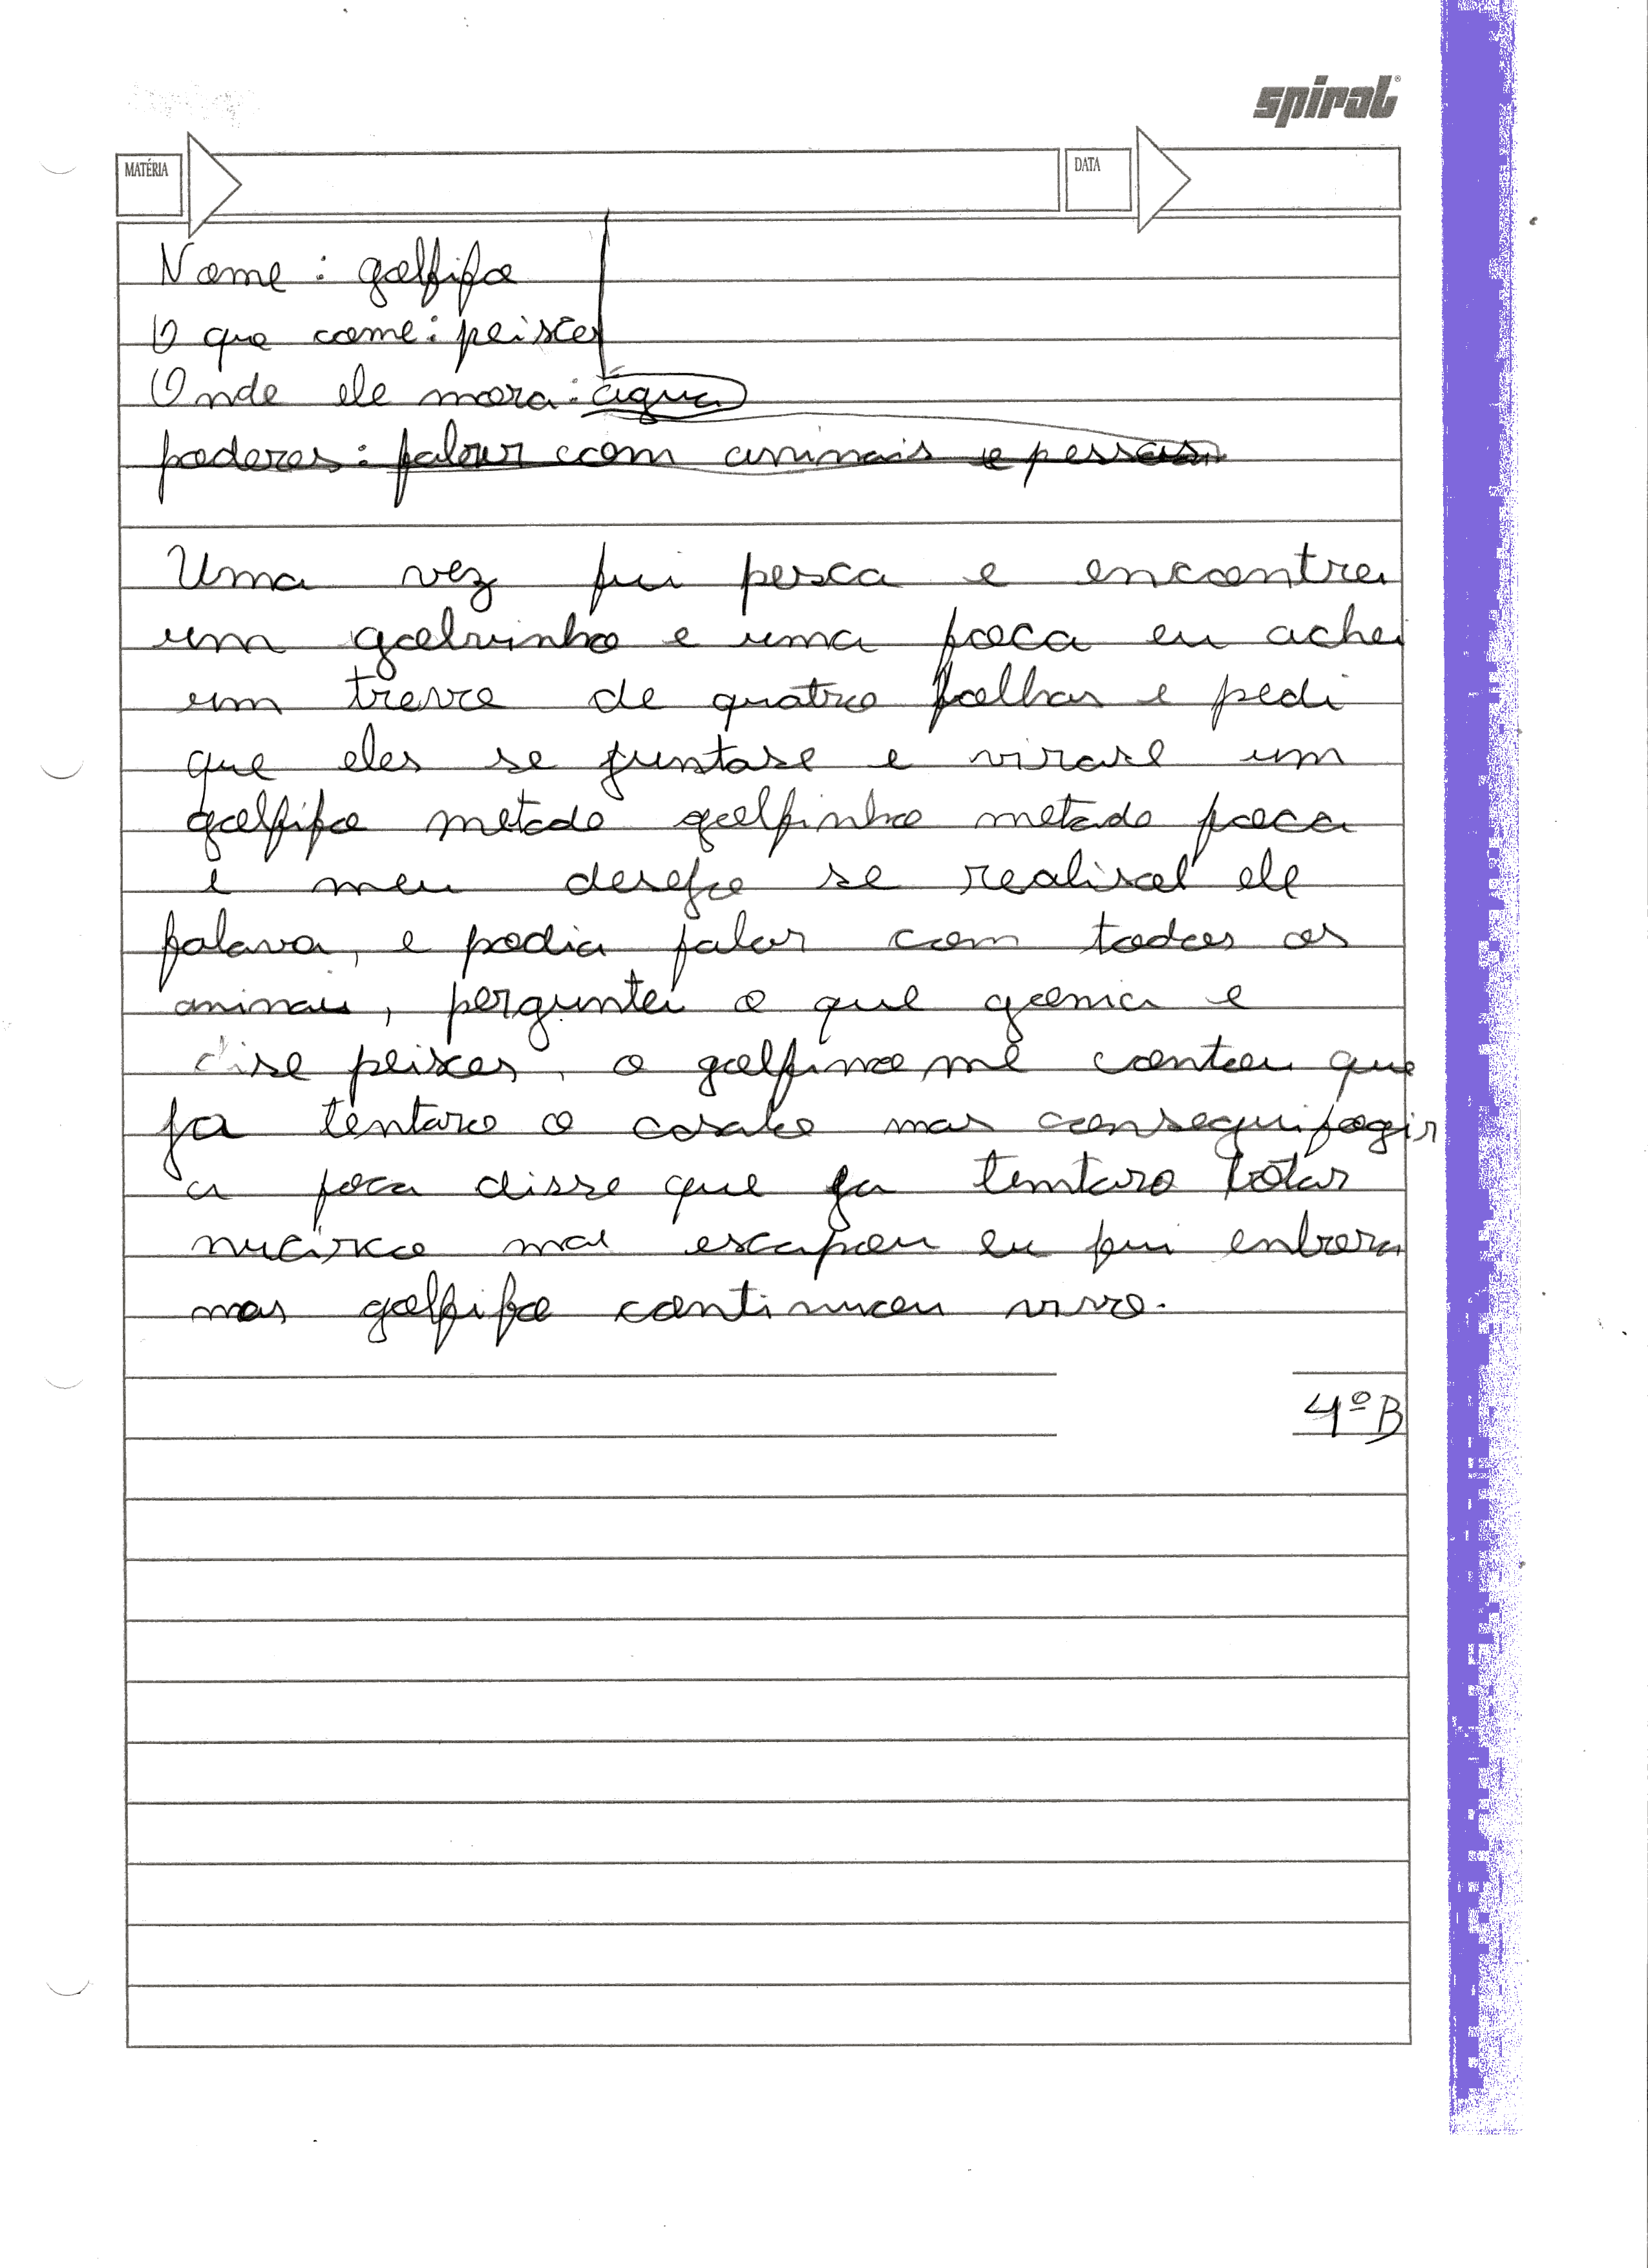 spiral®
MATÉRIA DATA
Nome: golfifo
O que come: peisces
Onde ele mora: água
poderes: falar com animais e pessoas
Uma vez fui pesca e encontrei
um golvinho e uma foca eu achei
um trevo de quatro folhas e pedi
que eles se juntase e virase um
golfifo metade golfinho metade foca
e meu desejo se realisol ele
falava, e podia falar com todos os
animais, perguntei o que gomia e
dise peixes, o golfino me contou que
ja tentaro o casalo mas consegui fogir
a foca disse que ja tentaro botar
nucirco mas escapou eu fui enbora
mas golfifo continuou vivo.
4ºB